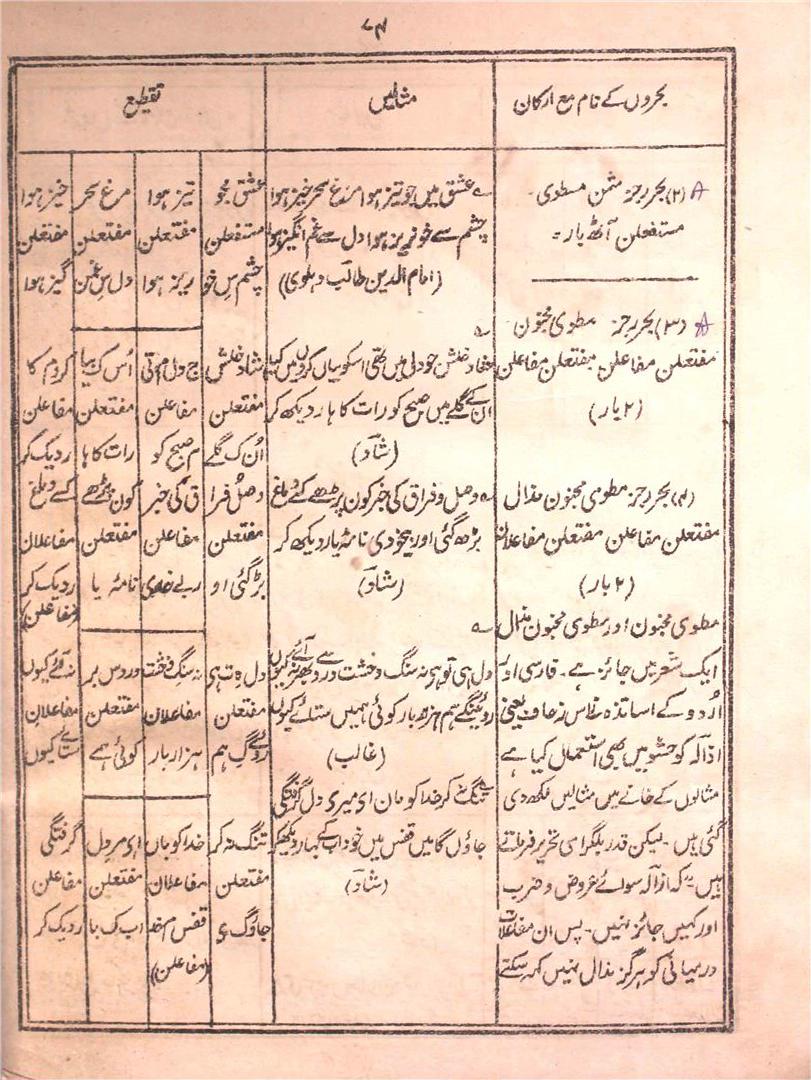 ۷۴
بحروں کے نام مع ارکان
مثالیں
تقطیع
(۲) بحر رجز مثمن مطوی۔
مستفعلن آٹھ بار =
(۳) بحر رجز مطوی مخبون
مفتعلن مفاعلن مفتعلن مفاعلن
(۲ بار)
(۴) بحر رجز مطوی مخبون مذال
مفتعلن مفاعلن مفتعلن مفاعلان
(۲ بار)
مطوی مخبون اور مطوی مخبون مذال
ایک شعر میں جائز ہے۔ فارسی اور
اُردو کے اساتذہ نے اس زحاف یعنی
اذالہ کو حشو میں بھی استعمال کیا ہے
مثالوں کے خانے میں مثالیں لکھ دی
گئی ہیں۔ لیکن قدر بلگرامی تحریر فرماتے
ہیں۔ کہ اذالہ سوائے عروض و ضرب
اور کہیں جائز نہیں۔ پس ان مفاعلات
درمیانی کو ہرگز مذال نہیں کہہ سکتے
عشق میں جو تیز ہوا مرغ سحر خیز ہوا
چشم سے خونریز ہوا دل سے غم انگیز ہوا
(امام الدین طالب دہلوی)
خلش جو دل میں تھی اسکو بیاں کروں میں کیا
ان کے گلے میں صبح کو رات کا ہار دیکھ کر
(شاد)
وصل و فراق کی خبر کون پڑھے کسے دماغ
بڑھ گئی اور بیخودی نامۂ یار دیکھ کر
(شاد)
دل ہی تو ہے نہ سنگ و خشت درد سے بھر نہ آئے کیوں
روئینگے ہم ہزار بار کوئی ہمیں ستائے کیوں
(غالب)
تنگ نہ کر خدا کو مان ای میری دل گرفتگی
جاؤں گا میں قفس میں خود اب کے بہار دیکھکر
(شاد)
عشق مجو | تیز ہوا | مرغ سحر | خیز ہوا
مستفعلن | مفتعلن | مفتعلن | مفتعلن
چشم سِ خو | ریز ہوا | دل سِ غمن | گیز ہوا
شاد خلش | ج دل م تی | اُس ک بیا | کروم کا
مفتعلن | مفاعلن | مفتعلن | مفاعلن
اُن ک گلے | م صبح کو | رات کا ہا | ردیک کر
وصلُ فرا | ق کی خبر | کون پڑھے | کسے دماغ
مفتعلن | مفاعلن | مفتعلن | مفاعلان
بڑ گئی او | ربے خدی | نامۂ یا | ردیک کر
(مفاعلن)
دل ہ ت ہی | نہ سنگ خشت | درد س بر | نہ آئے کیوں
مفتعلن | مفاعلان | مفتعلن | مفاعلان
روئے گِ ہم | ہزار بار | کوئی ہے | ستائے کیوں
تنگ نہ کر | خدا کو مان | ای مرِ دل | گرفتگی
مفتعلن | مفاعلان | مفتعلن | مفاعلن
جاؤگِ | قفس م خد | اب ک با | ردیک کر
(مفاعلن)